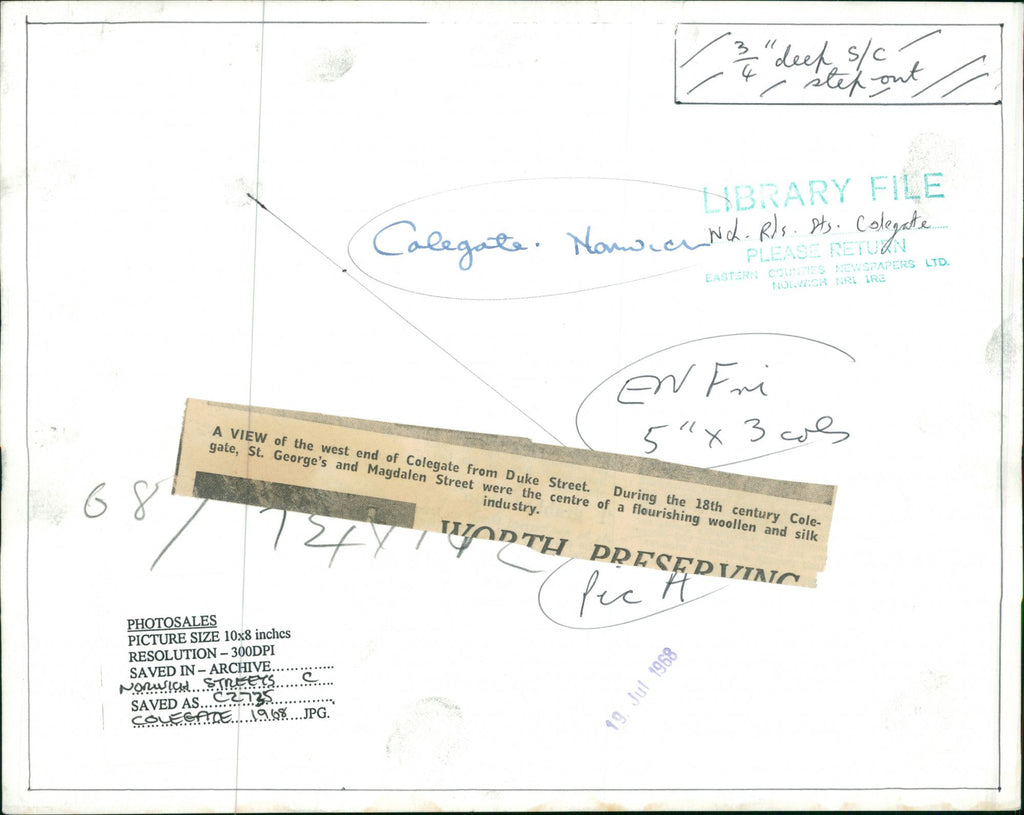 3/4" deep S/C
step-out
LIBRARY FILE
Colegate. Norwich
Nch. Rds. Sts. Colegate
PLEASE RETURN
EASTERN COUNTIES NEWSPAPERS LTD.
NORWICH NR1 1RE
EN Fri
5" x 3 cols
A VIEW of the west end of Colegate from Duke Street. During the 18th century Cole-
gate, St. George's and Magdalen Street were the centre of a flourishing woollen and silk
industry.
WORTH PRESERVING
68
Pic A
PHOTOSALES
PICTURE SIZE 10x8 inches
RESOLUTION – 300DPI
SAVED IN – ARCHIVE
NORWICH STREETS C
SAVED AS C2735
COLEGATE 1968 JPG.
19 Jul 1968